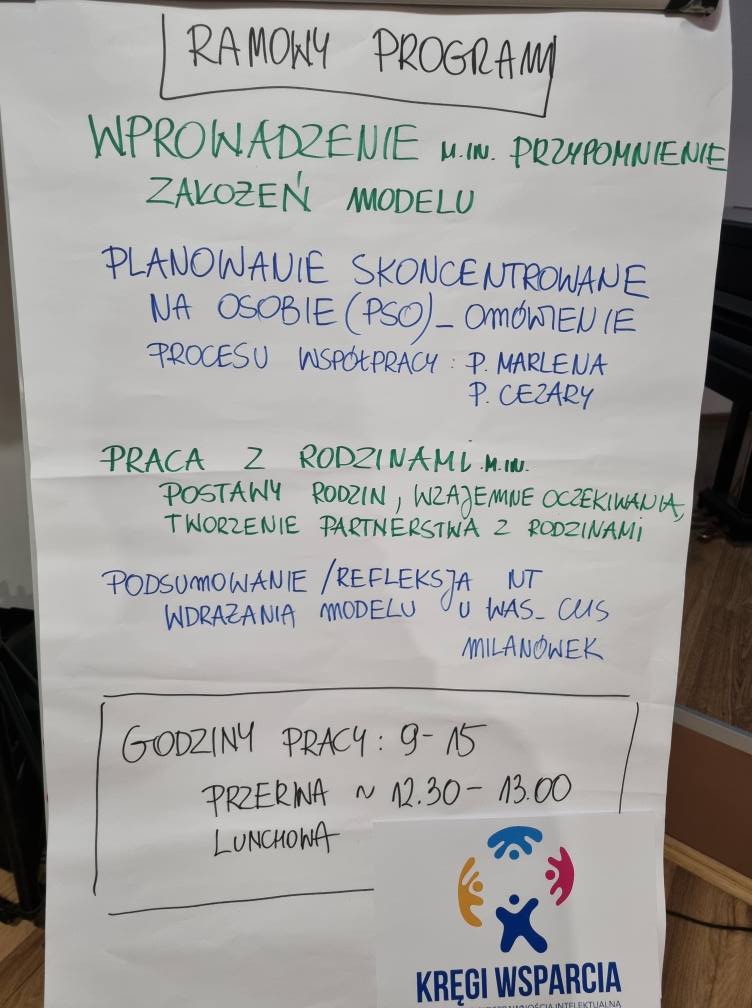 RAMOWY PROGRAM
WPROWADZENIE M.IN. PRZYPOMNIENIE
ZAŁOŻEŃ MODELU
PLANOWANIE SKONCENTROWANE
NA OSOBIE (PSO) - OMÓWIENIE
PROCESU WSPÓŁPRACY: P. MARLENA
P. CEZARY
PRACA Z RODZINAMI M.IN.
POSTAWY RODZIN, WZAJEMNE OCZEKIWANIA,
TWORZENIE PARTNERSTWA Z RODZINAMI
PODSUMOWANIE / REFLEKSJA NT
WDRAŻANIA MODELU U WAS - CUS
MILANÓWEK
GODZINY PRACY: 9-15
PRZERWA ~ 12.30 - 13.00
LUNCHOWA
KRĘGI WSPARCIA
INTELEKTUALNĄ